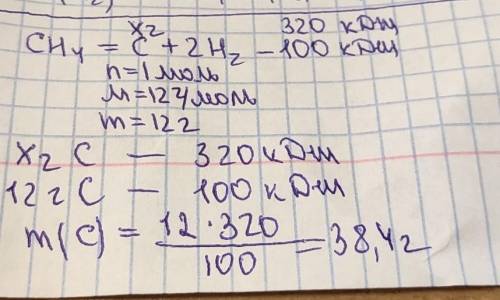 x г 320 кДж
CH₄ = C + 2H₂ - 100 кДж
n = 1 моль
M = 12 г/моль
m = 12 г
x г C — 320 кДж
12 г C — 100 кДж
m(C) = 12·320 / 100 = 38,4 г